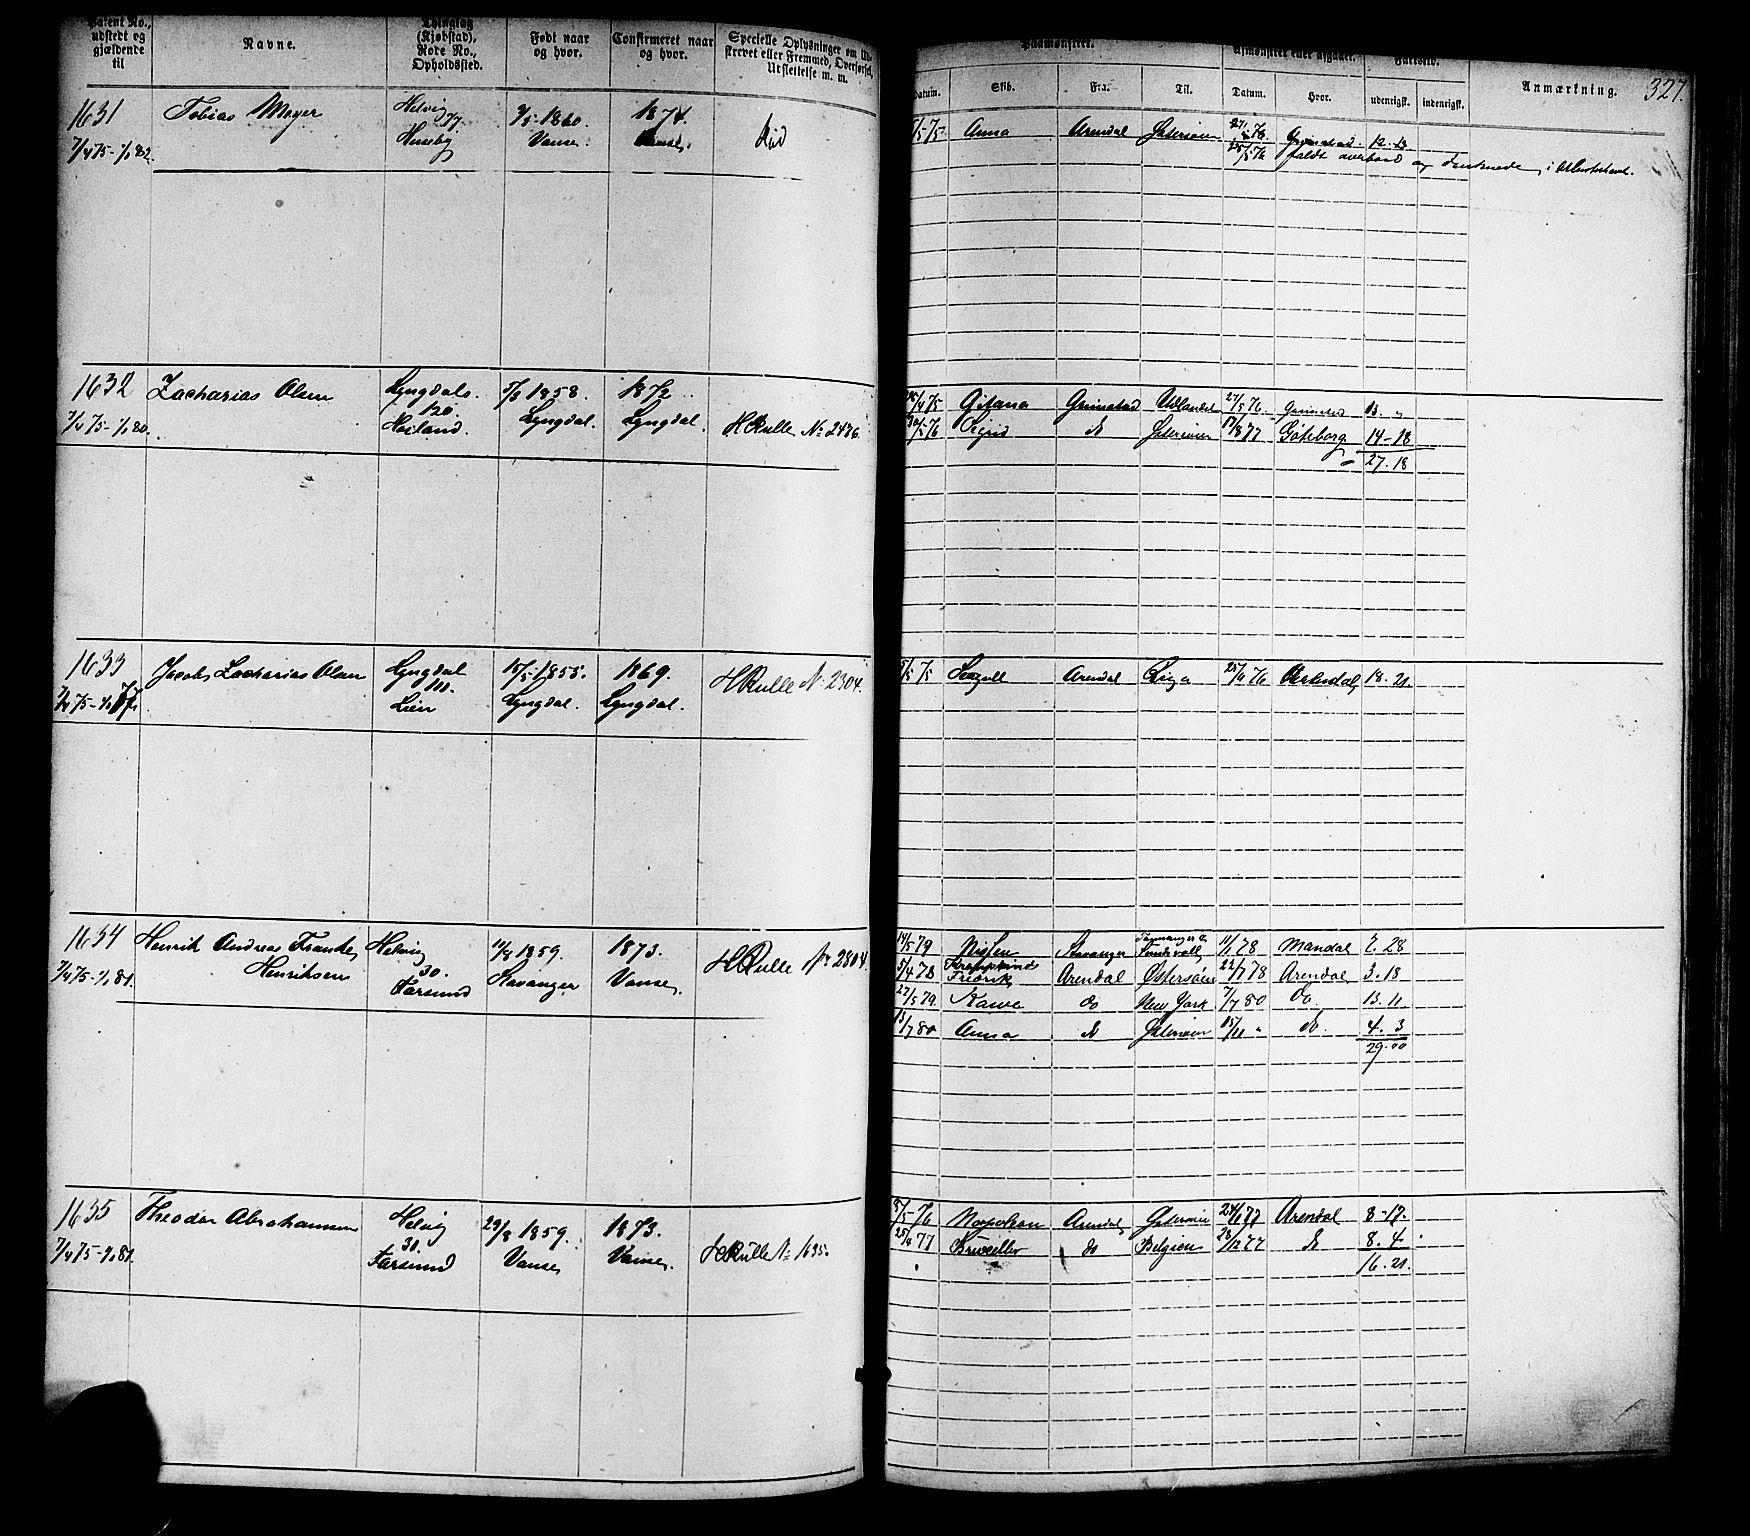 Patent No., udstedt og gjældende til
Navne.
Thinglag (Kjøbstad), Rode No., Opholdssted.
Født naar og hvor.
Confirmeret naar og hvor.
Specielle Oplysninger om Ud-
skrevet eller Fremmed, Overførsel,
Udslettelse m. m.
Paamønstret.
Afmønstret eller afgaaet.
Fartstid.
Anmærkning.
327.
Datum.
Skib.
Fra.
Til.
Datum.
Hvor.
udenrigsk.
indenrigsk.
1631
Tobias Meyer
Helvig
77
Huseby
1860.
Vanse.
1874.
Vanse.
Død
7/4 75 - 1/1 82.
5/5 75
Anna
Arendal
Østersøen
Grimstad.
12. 13
25/5 76
faldt overbord og druknede i Atlanterhavet.
1632
Zacharias Olsen
Lyngdals.
120.
Høiland.
1858.
Lyngdal.
1872.
Lyngdal.
H Rulle No 2476
7/4 75 - 1/1 80.
26/4 75
Gitana
Grimstad
Udlandet
27/5 76.
Grimstad
13. "
30/5 76
Sigrid
do
Østersøen
17/8 77
Göteborg
14 - 18
27. 18
1633
Jacob Zacharias Olsen
Lyngdal
111.
Lien
15/5 1855.
Lyngdal.
1869.
Lyngdal.
H Rulle No 2304.
5/5 75
Seagull
Arendal
Riga
25/11 76
Arendal
18. 21.
1634
Henrik Andreas Franke
Henriksen
Helvig
30.
Farsund
11/8 1859.
Stavanger
1873.
Vanse.
H Rulle No 2304
7/4 75 - 1/1 81.
14/5 79
Nissen
Stavanger
Sundsvall
11/1 78
Mandal
7. 28
5/4 78
Fredrik
Arendal
Østersøen
22/7 78
Arendal
3. 18
27/5 79.
do
New York
7/7 80
Do.
13. 11
13/7 80
Anna
do
Østersøen
15/11 "
do.
4. 3
29. 00
1635
Theodor Abrahamsen
Helvig
30.
Farsund
29/8 1859.
Vanse
1873.
Vanse.
H Rulle No 1695.
7/4 75 - 1/1 81.
8/5 - 76
Napoleon
Arendal
Østersøen
24/1 77
Arendal
8 - 17.
25/4 77
Bruxelles
do
Belgien
28/12 77
do
8. 4
16. 21.